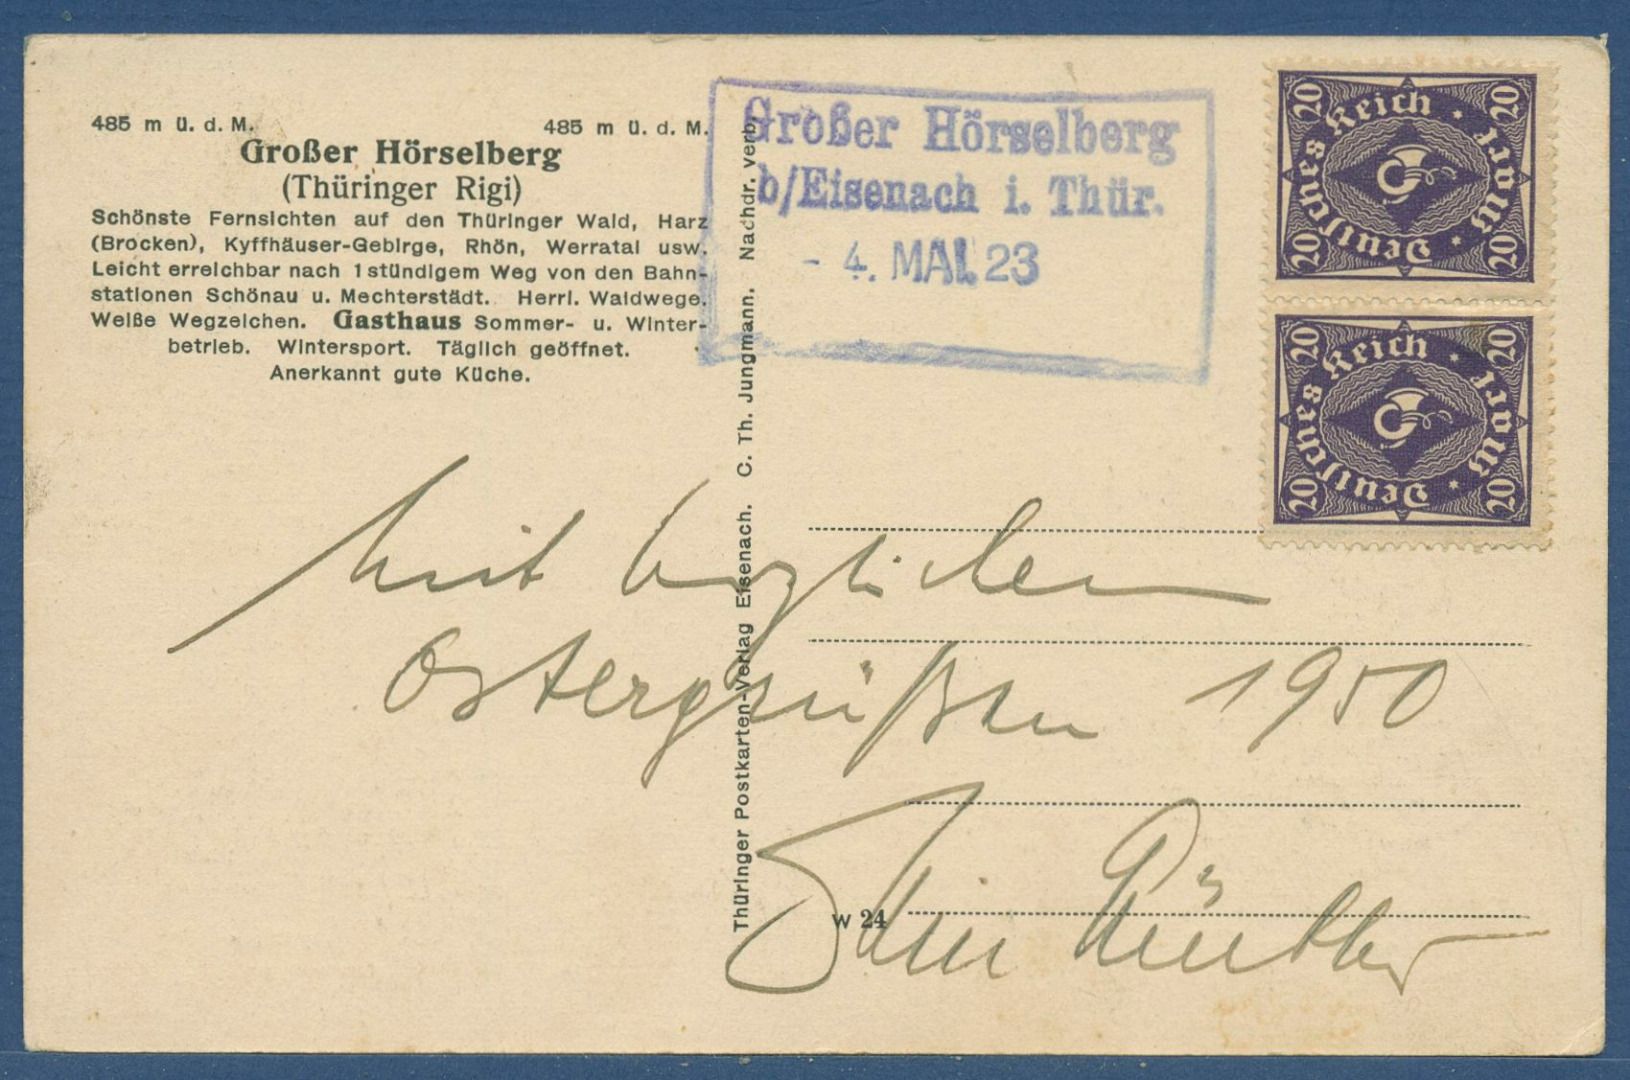 485 m ü. d. M. 485 m ü. d. M.
Großer Hörselberg
(Thüringer Rigi)
Schönste Fernsichten auf den Thüringer Wald, Harz
(Brocken), Kyffhäuser-Gebirge, Rhön, Werratal usw.
Leicht erreichbar nach 1stündigem Weg von den Bahn-
stationen Schönau u. Mechterstädt. Herrl. Waldwege.
Weiße Wegzeichen. Gasthaus Sommer- u. Winter-
betrieb. Wintersport. Täglich geöffnet.
Anerkannt gute Küche.
Großer Hörselberg
b/Eisenach i. Thür.
- 4. MAI. 23
Thüringer Postkarten-Verlag Eisenach. C. Th. Jungmann. Nachdr. verb.
20 20
Deutsches Reich · 20 Mark
20 20
20 20
Deutsches Reich · 20 Mark
20 20
Mit herzlichen
Ostergrüßen 1950
W 24